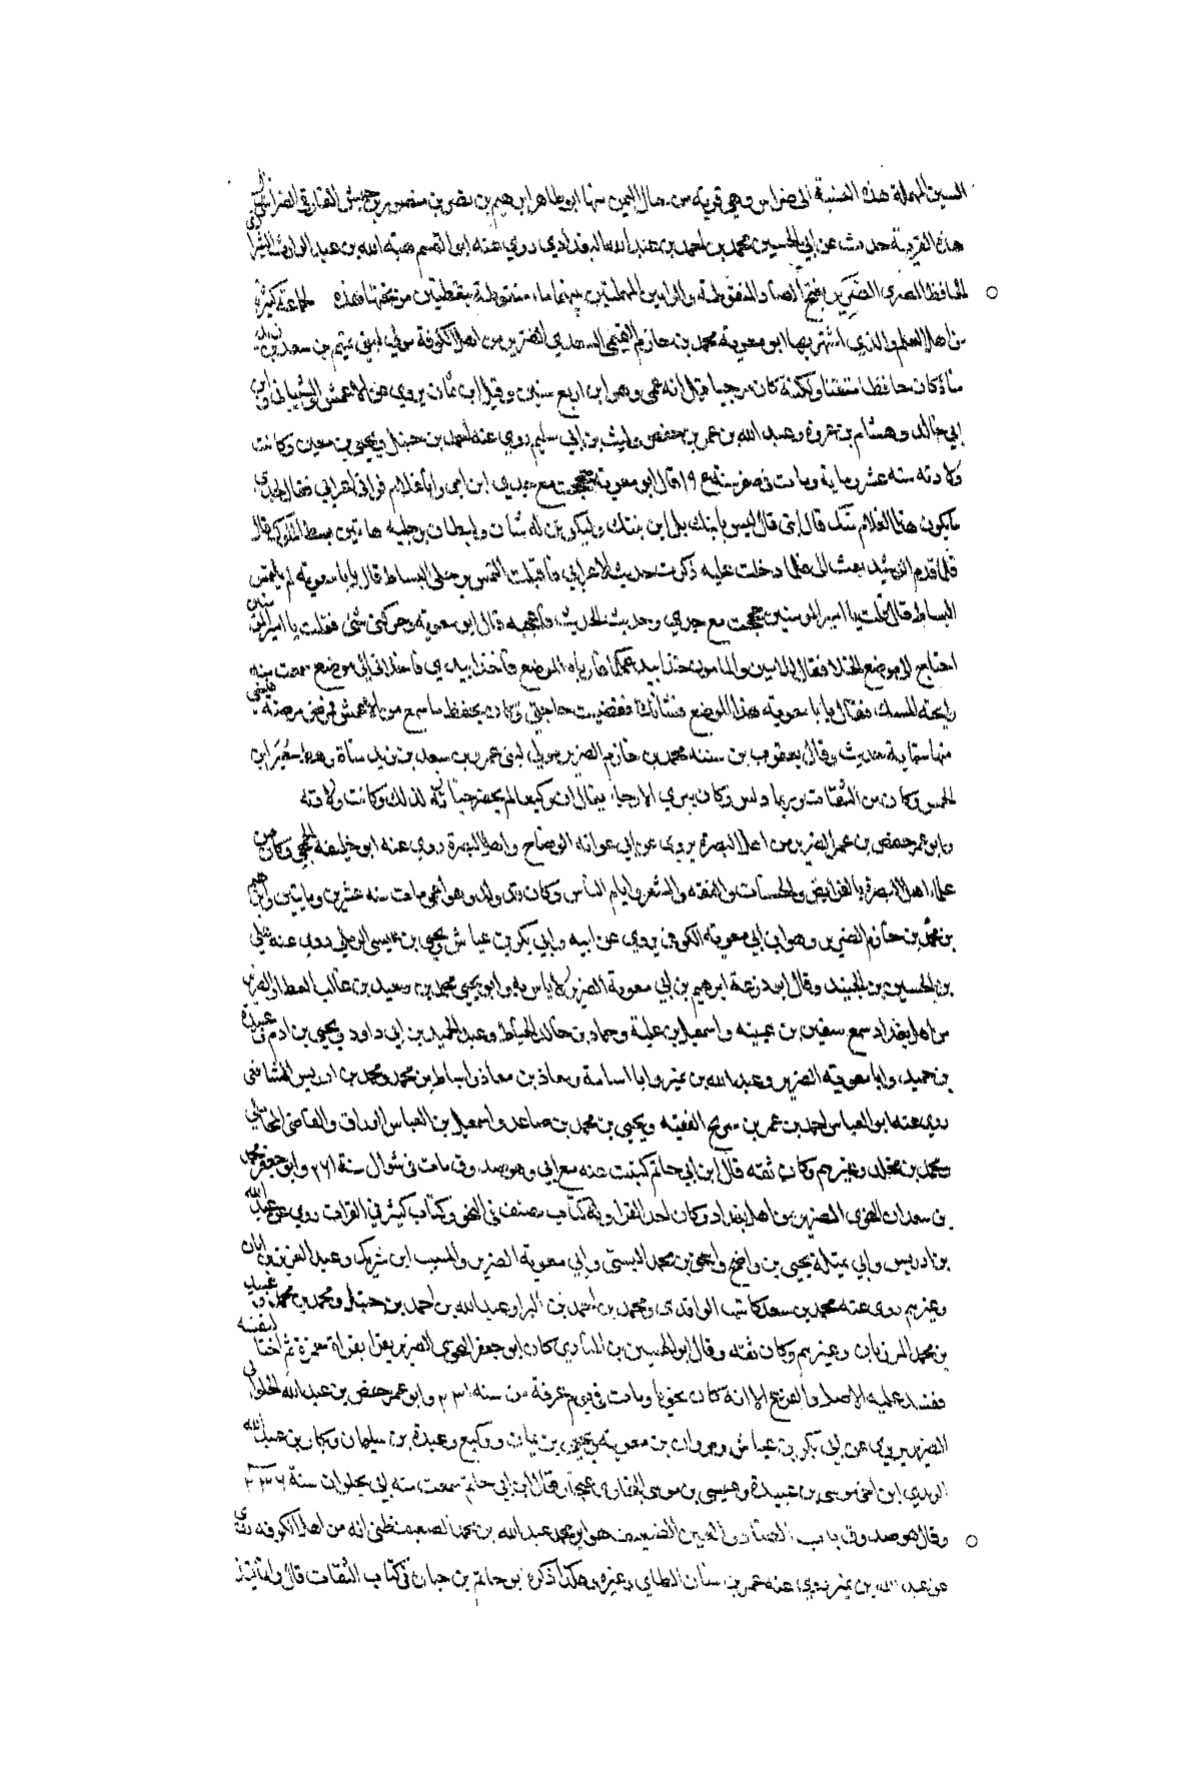 السين المهملة هذه النسبة الى ضراس وهي قرية من جبال اليمن منها ابو طاهر ابرهيم بن نصر بن منصور بن حبش الفارقي الضراسي
هذه القرية حدث عن ابي الحسين محمد بن احمد بن عبد الله البغدادي روى عنه ابو القسم هبة الله بن عبد الوارث الشيرازي
الحافظ الضرير بفتح الضاد المنقوطة والراءين المهملتين بينهما ما منقوطة بنقطتين من تحتها هذه لجماعة كثيرة
من اهل العلم والذي اشتهر بها ابو معوية محمد بن خازم التميمي السعدي الضرير من اهل الكوفة مولى لبني تميم من سعد بن زيد
مناة كان حافظا متقنا ولكنه كان مرجيا قيل انه عمى وهو ابن اربع سنين وقيل ابن ثمان يروي عن الاعمش والشيباني وابن
ابي خالد وهشام بن عروة وعبيد الله بن عمر بن حفص وليث بن ابي سليم روى عنه احمد بن حنبل ويحيى بن معين وكانت
ولادته سنة عشر وماية ومات في صفر سنة قال ابو معوية حججت مع جدي ابي امي وانا غلام فراني اعرابي فقال لجدي
ما يكون هذا الغلام منك قال ابني قال ليس بابنك بل ابن بنتك وليكونن له شان وليطان برجليه هاتين بسط الملوك قال
فلما قدم الرشيد بعث الي فلما دخلت عليه ذكرت حديث الاعرابي فاقبلت التمس برجلي البساط قال يا با معوية لم تلتمس
البساط قال قلت يا امير المومنين حججت مع جدي وحديث الحديث فاعجبه قال ابو معوية وحركني شي فقلت يا امير المومنين
احتاج الى موضع الخلا فقال للامين والمامون خذا بيد عمكما فارياه الموضع فاخذا بيدي فادخلاني الى موضع شممت منه
رايحة المسك فقال يا با معوية هذا الموضع فشانك فقضيت حاجتي وكان يحفظ ما سمع من الاعمش فمرض مرضة فنسي
منها ستماية حديث وقال يعقوب بن شيبة محمد بن خازم الضرير مولى لبني عمرو بن سعد بن زيد مناة وهط سعير ابن
الخمس وكان من الثقات وربما دلس وكان يرى الارجا يقال ان وكيعا لم يحضر جنازته لذلك وكانت ولادته
وابو عمر حفص بن عمر الضرير من اهل البصرة يروي عن ابي عوانة الوضاح واهل البصرة روى عنه ابو خليفة الجمحي وكان من
علماء اهل البصرة بالفرايض والحساب والفقه والشعر وايام الناس وكان ولد وهو اعمى مات سنة عشرين ومايتين وابرهيم
بن محمد بن خازم الضرير وهو ابن ابي معوية الكوفي يروي عن ابيه وابي بكر بن عياش ويحيى بن عيسى الرملي روى عنه علي
بن الحسين بن الجنيد وقال ابو زرعة ابرهيم بن ابي معوية الضرير لا باس به وابو يحيى محمد بن سعيد بن غالب العطار الضرير
من اهل بغداد سمع سفين بن عيينة واسمعيل بن علية وحماد بن خالد الخياط وعبد الحميد بن ابي داود ويحيى بن ادم وعبيدة
بن حميد وابا معوية الضرير وعبد الله بن نمير وابا اسامة ومعاذ بن معاذ واسباط بن محمد ومحمد بن ادريس الشافعي
روى عنه ابو العباس احمد بن عمر بن سريج الفقيه ويحيى بن محمد بن صاعد واسمعيل بن العباس الوراق والقاضي المحاملي
ومحمد بن مخلد وغيرهم وكان ثقة قال ابن ابي حاتم كتبت عنه مع ابي وهو صدوق مات في شوال سنة ٢٦١ وابو جعفر محمد
بن سعدان النحوي الضرير من اهل بغداد وكان احد القراء وله كتاب مصنف في النحو وكتاب كبير في القرات روى عن عبد الله
بن ادريس وابي تميلة يحيى بن واضح واسحق بن محمد المسيبي وابي معوية الضرير والمسيب ابن شريك وعبد العزيز بن ابان
وغيرهم روى عنه محمد بن سعد كاتب الواقدي ومحمد بن احمد بن البرا وعبد الله بن احمد بن حنبل ومحمد بن محمد وعبيد
بن محمد المرزبان وغيرهم وكان ثقة وقال ابو الحسين بن المنادي كان ابو جعفر النحوي الضرير يقرا بقراة حمزة ثم اختار لنفسه
ففسد عليه الاصل والفرع الا انه كان نحويا ومات في يوم عرفة من سنة ٢٣١ وابو عمر حفص بن عبد الله الحلواني
الضرير يروي عن ابي بكر بن عياش ومروان بن معوية ويحيى بن يمان ووكيع وعبدة بن سليمان وبكار بن عبد الله
الربذي ابن اخي موسى بن عبيدة وعيسى بن موسى البخاري غنجار قال ابن ابي حاتم سمعت منه ابي بحلوان سنة ٢٣٦
وقال هو صدوق باب الضاد والعين الضعيف هو ابو محمد عبد الله بن محمد الضعيف ظني انه من اهل الكوفة روى
عن عبد الله بن نمير روى عنه عمر بن سنان الطاي وغيره هكذا ذكره ابو حاتم بن حبان في كتاب الثقات قال وانما قيل